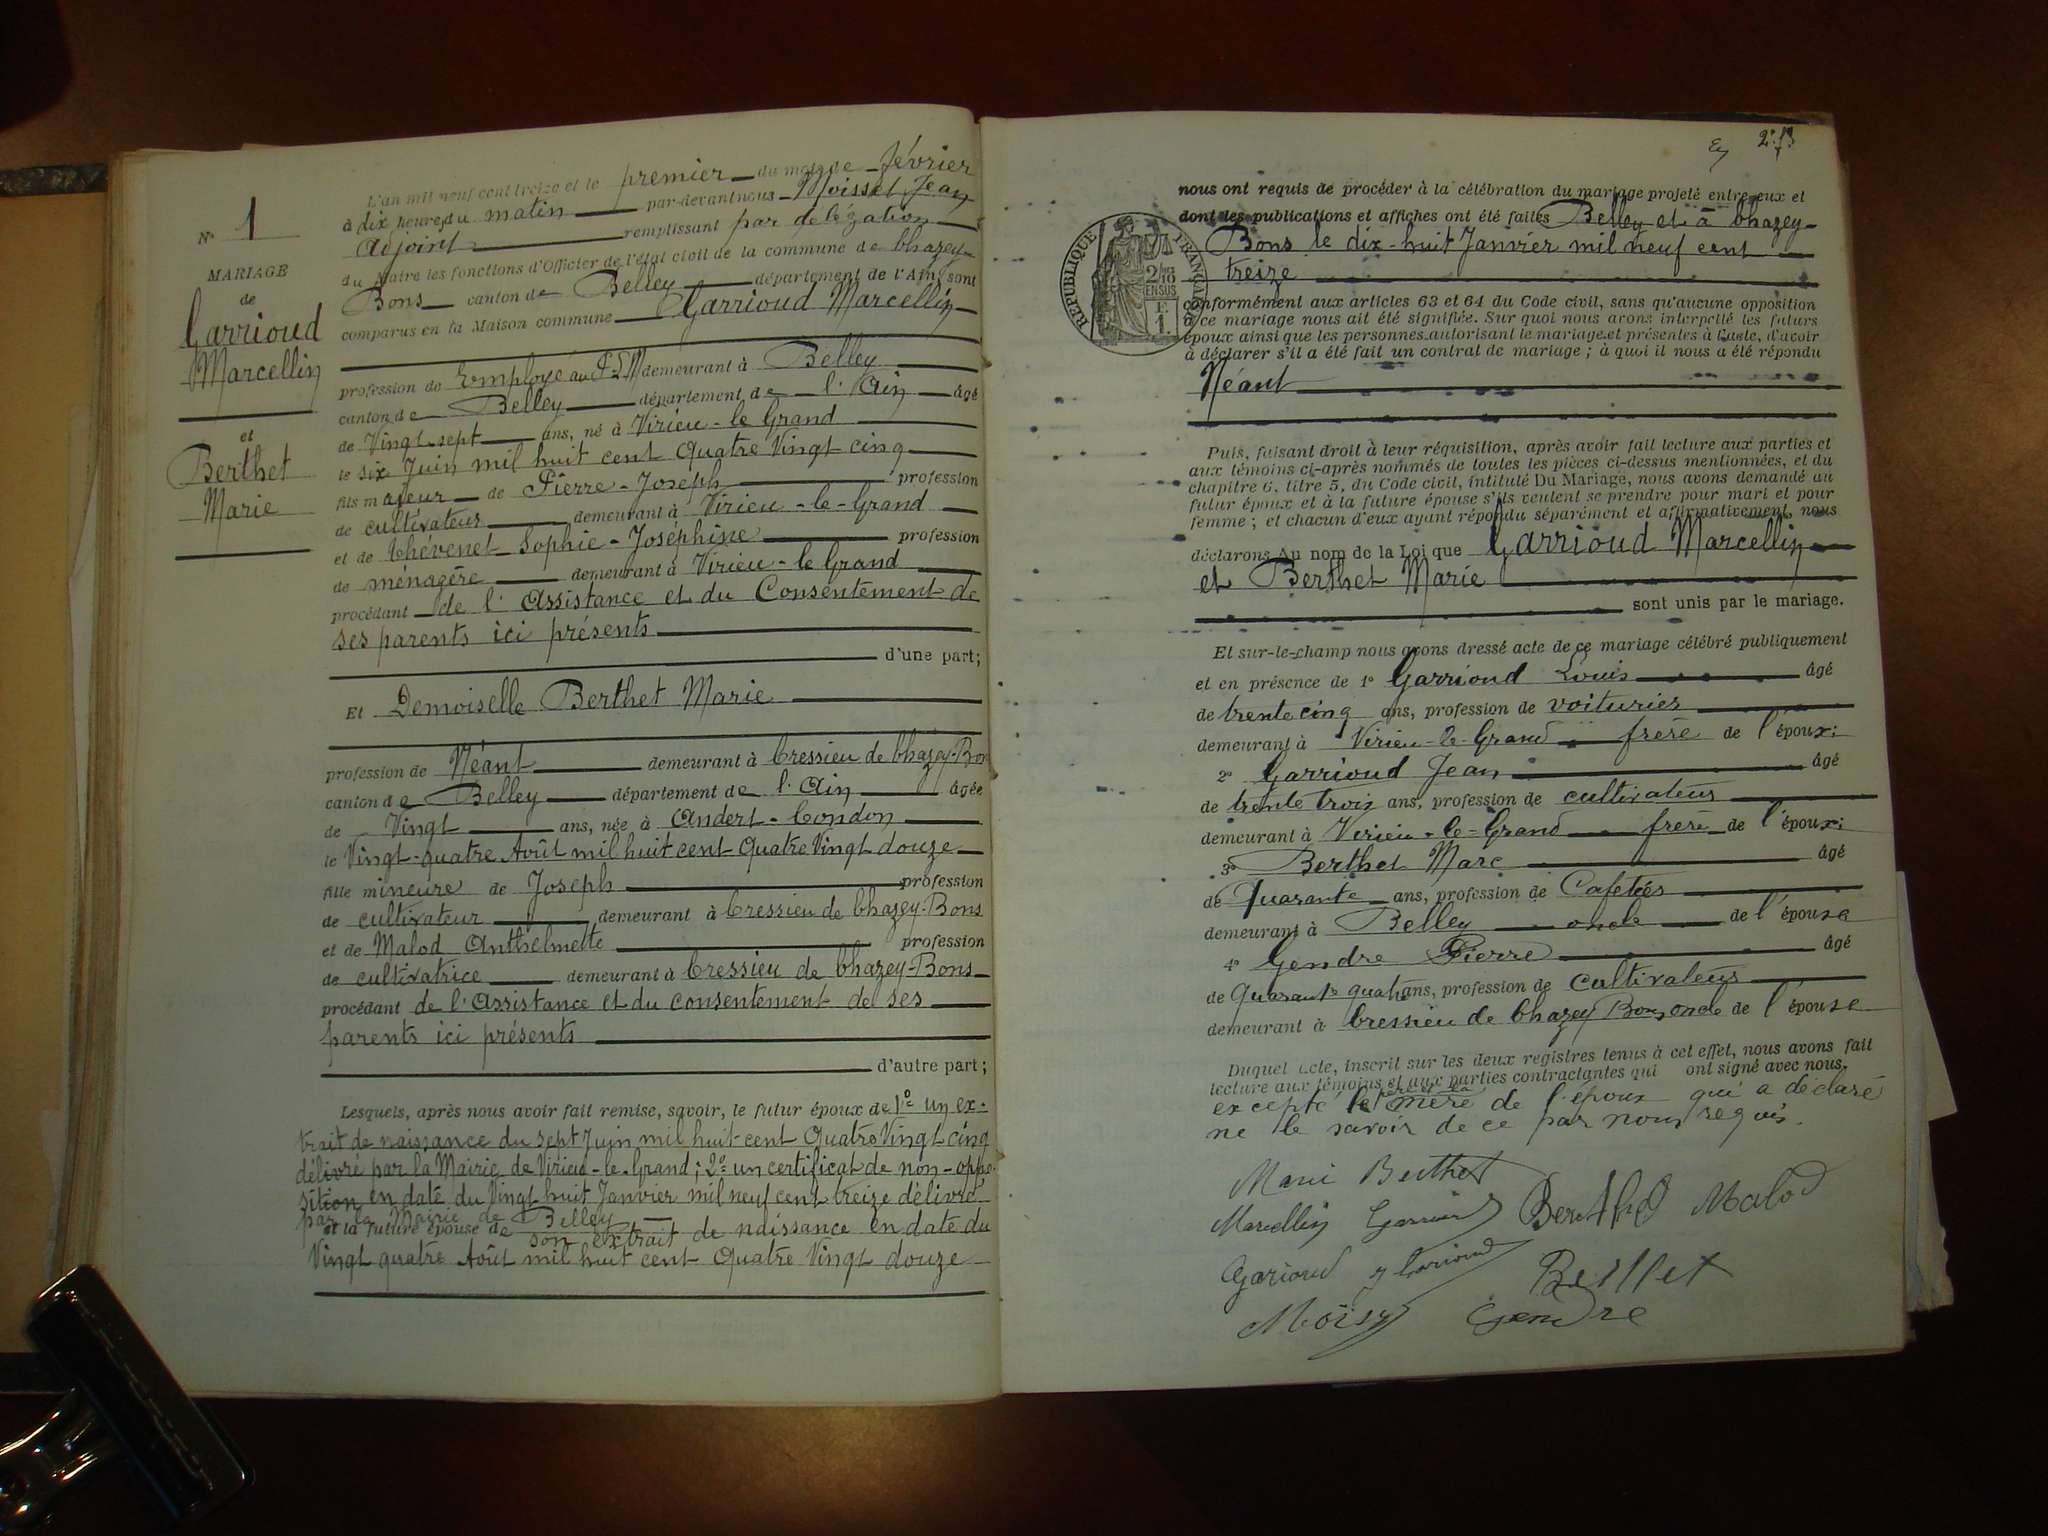 N° 1
MARIAGE
de
Carrioud
Marcellin
et
Berthet
Marie
L'an mil neuf cent treize et le premier du mois de février
à dix heures du matin par-devant nous Moisset Jean
Adjoint remplissant par délégation
du Maire les fonctions d'Officier de l'état civil de la commune de Chazey-
Bons canton de Belley département de l'Ain, sont
comparus en la Maison commune Garrioud Marcellin
profession de Employé au P-L-M demeurant à Belley
canton de Belley département de l'Ain âgé
de Vingt-sept ans, né à Virieu-le-Grand
le six Juin mil huit cent Quatre Vingt cinq
fils majeur de Pierre-Joseph profession
de cultivateur demeurant à Virieu-le-Grand
et de Thévenet Sophie-Joséphine profession
de ménagère demeurant à Virieu-le Grand
procédant de l'Assistance et du Consentement de
ses parents ici présents
d'une part;
Et Demoiselle Berthet Marie
profession de Néant demeurant à Cressieu de Chazey-Bons
canton de Belley département de l'Ain âgée
de Vingt ans, née à Andert-Condon
le Vingt-quatre Août mil huit cent Quatre Vingt douze
fille mineure de Joseph profession
de cultivateur demeurant à Cressieu de Chazey-Bons
et de Malod Anthelmette profession
de cultivatrice demeurant à Cressieu de Chazey-Bons
procédant de l'Assistance et du consentement de ses
parents ici présents
d'autre part;
Lesquels, après nous avoir fait remise, savoir, le futur époux de 1° un ex-
trait de naissance du sept Juin mil huit cent Quatre Vingt cinq
délivré par la Mairie de Virieu-le-Grand; 2° un certificat de non-oppo-
sition en date du Vingt huit Janvier mil neuf cent treize délivré
par la Mairie de Belley
et la future épouse de son extrait de naissance en date du
Vingt quatre Août mil huit cent Quatre Vingt douze
nous ont requis de procéder à la célébration du mariage projeté entre eux et
dont les publications et affiches ont été faites Belley et à Chazey-
Bons le dix-huit Janvier mil neuf cent
treize
RÉPUBLIQUE FRANÇAISE
2/10 EN SUS
F. 1.
conformément aux articles 63 et 64 du Code civil, sans qu'aucune opposition
à ce mariage nous ait été signifiée. Sur quoi nous avons interpellé les futurs
époux ainsi que les personnes autorisant le mariage et présentes à l'acte, d'avoir
à déclarer s'il a été fait un contrat de mariage; à quoi il nous a été répondu
Néant
Puis, faisant droit à leur réquisition, après avoir fait lecture aux parties et
aux témoins ci-après nommés de toutes les pièces ci-dessus mentionnées, et du
chapitre 6, titre 5, du Code civil, intitulé Du Mariage, nous avons demandé au
futur époux et à la future épouse s'ils veulent se prendre pour mari et pour
femme; et chacun d'eux ayant répondu séparément et affirmativement, nous
déclarons Au nom de la Loi que Garrioud Marcellin
et Berthet Marie
sont unis par le mariage.
Et sur-le-champ nous avons dressé acte de ce mariage célébré publiquement
et en présence de 1° Garrioud Louis âgé
de trente cinq ans, profession de voiturier
demeurant à Virieu-le-Grand frère de l'époux;
2° Garrioud Jean âgé
de trente trois ans, profession de cultivateur
demeurant à Virieu-le-Grand frère de l'époux;
3° Berthet Marc âgé
de Quarante ans, profession de Cafetier
demeurant à Belley oncle de l'épouse
4° Gendre Pierre âgé
de Quarante quatre ans, profession de cultivateur
demeurant à Cressieu de Chazey Bons oncle de l'épouse
Duquel acte, inscrit sur les deux registres tenus à cet effet, nous avons fait
lecture aux témoins et aux parties contractantes qui ont signé avec nous.
excepté le père et la mère de l'époux qui a déclaré
ne le savoir de ce par nous requis.
Marie Berthet
Marcellin Garrioud Berthet Malod
Garioud J Carrioud Berthet
Gendre